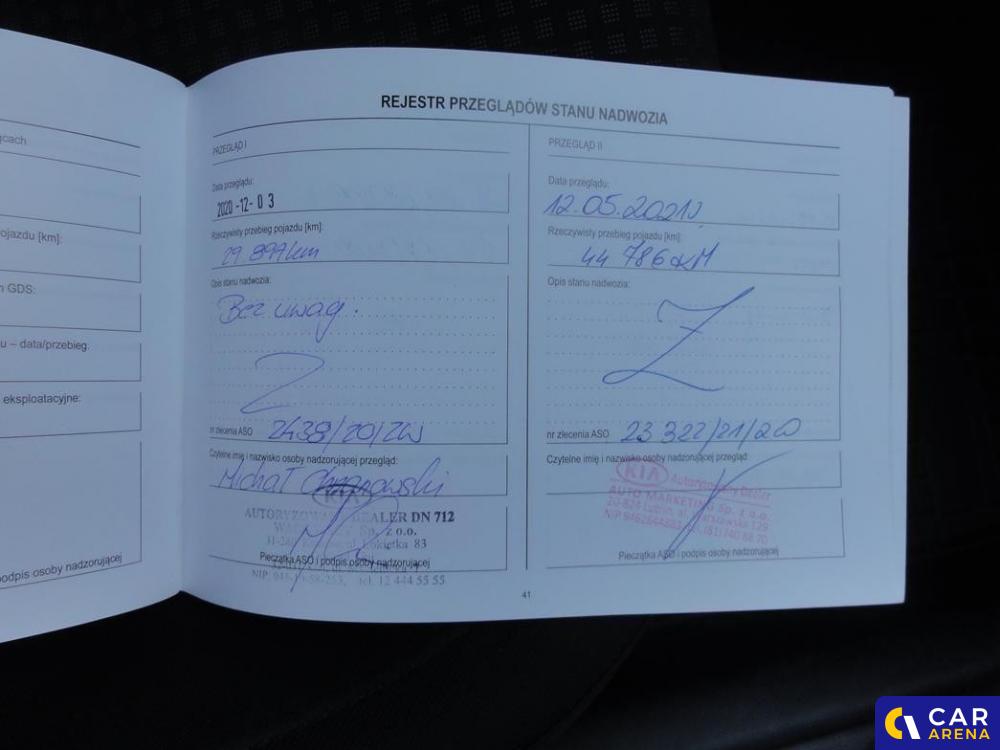 REJESTR PRZEGLĄDÓW STANU NADWOZIA
ojazdu [km]:
GDS:
u – data/przebieg:
eksploatacyjne:
odpis osoby nadzorującej
PRZEGLĄD I
Data przeglądu:
2020-12-03
Rzeczywisty przebieg pojazdu [km]:
km
Opis stanu nadwozia:
Bez uwag.
nr zlecenia ASO 2438/20/ZW
Czytelne imię i nazwisko osoby nadzorującej przegląd:
Michał
AUTORYZOWANY DEALER DN 712
Sp. z o.o.
83
Pieczątka ASO i podpis osoby nadzorującej
NIP: tel. 12 444 55 55
PRZEGLĄD II
Data przeglądu:
12.05.2021
Rzeczywisty przebieg pojazdu [km]:
44 786 KM
Opis stanu nadwozia:
nr zlecenia ASO 23 322/21/20
Czytelne imię i nazwisko osoby nadzorującej przegląd:
KIA Autoryzowany Dealer
AUTO MARKETING Sp. z o.o.
20-824 Lublin, al. Warszawska 129
Pieczątka ASO i podpis osoby nadzorującej
41
CAR
ARENA